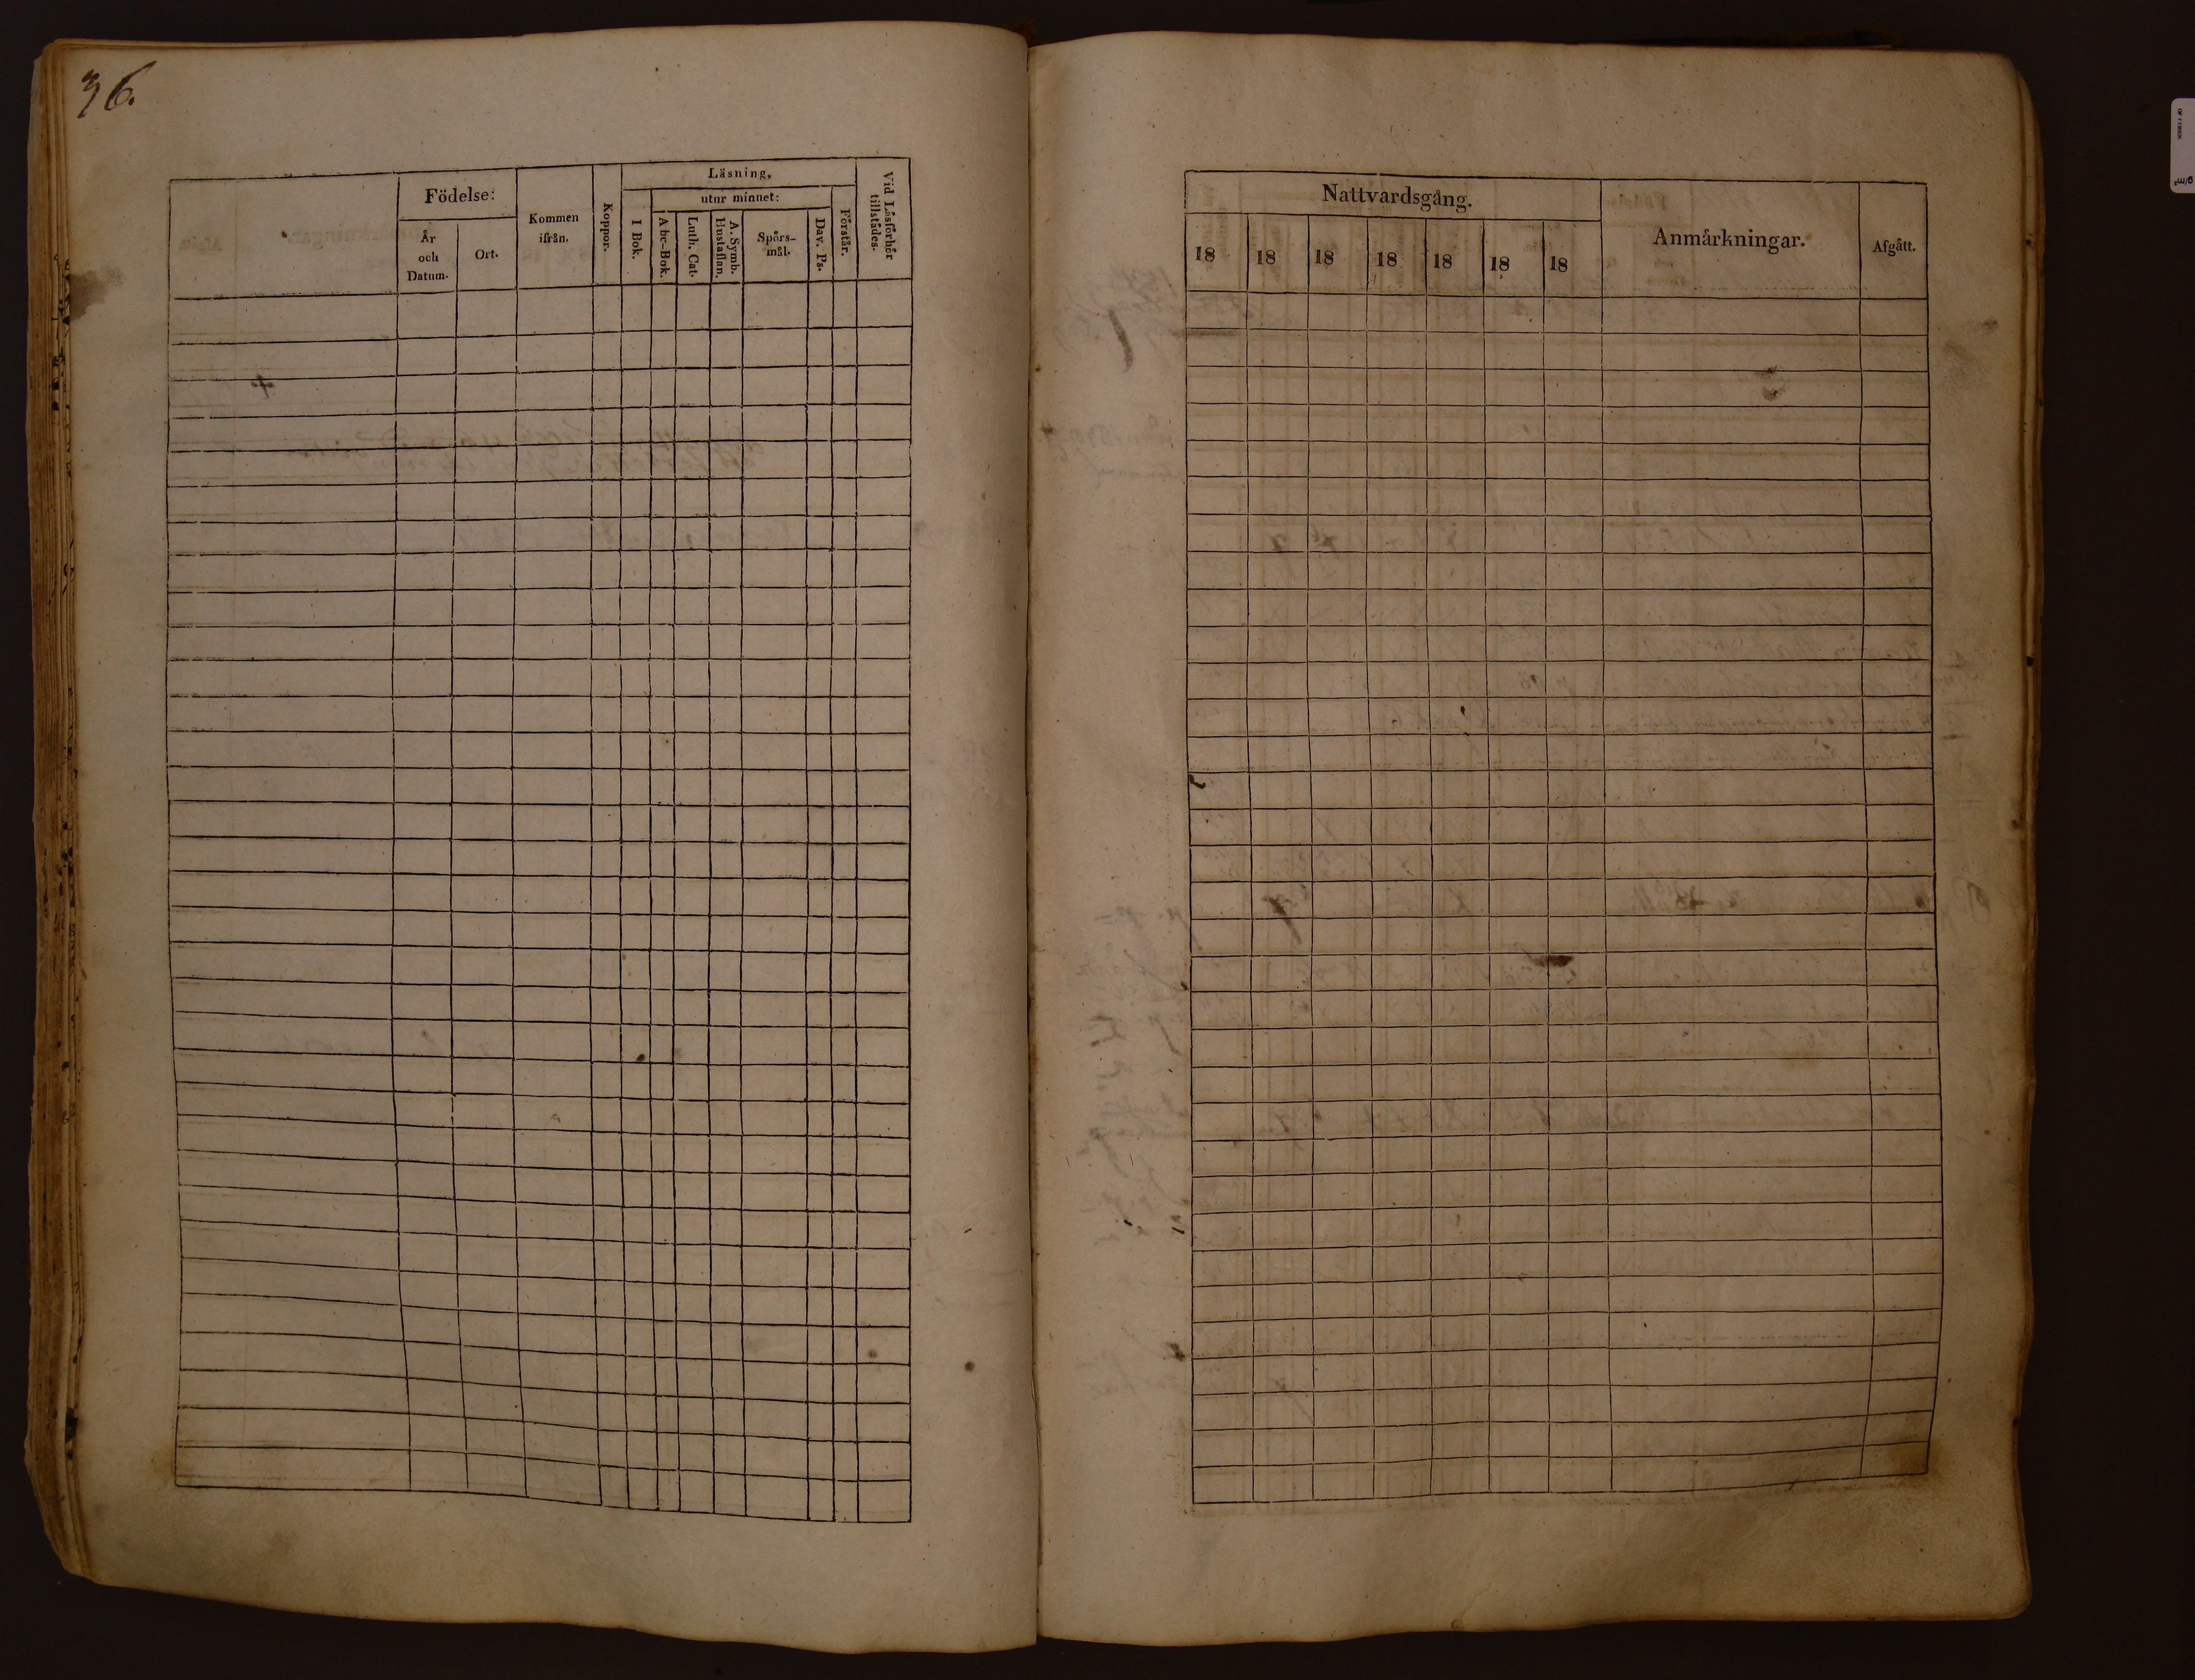 36.
Födelse:
År
och
Datum.
Ort.
Kommen
ifrån.
Koppor.
Läsning.
I Bok.
utur minnet:
Abc-Bok.
Luth. Cat.
A. Symb.
Hustaflan.
Spörs-
mål.
Dav. Ps.
Förstår.
Vid Läsförhör
tillstädes.
Nattvardsgång.
18 18 18 18 18 18 18
Anmärkningar.
Afgått.